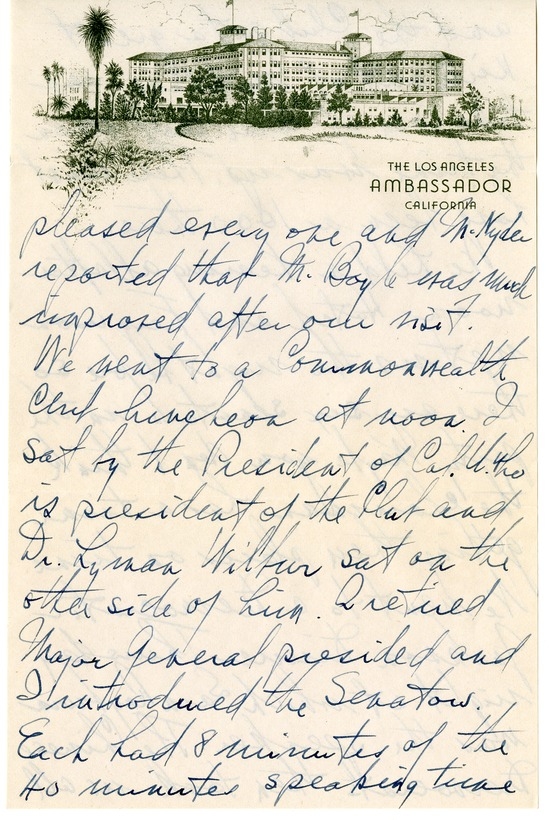 THE LOS ANGELES
AMBASSADOR
CALIFORNIA
pleased every one and
reported that Mr. Boyle was much
improved after our visit.
We went to a Commonwealth
Club luncheon at noon. I
sat by the President of Cal. U. who
is president of the Club and
Dr. Lyman Wilbur sat on the
other side of him. A retired
Major General presided and
I introduced the Senators.
Each had 8 minutes of the
40 minutes speaking time